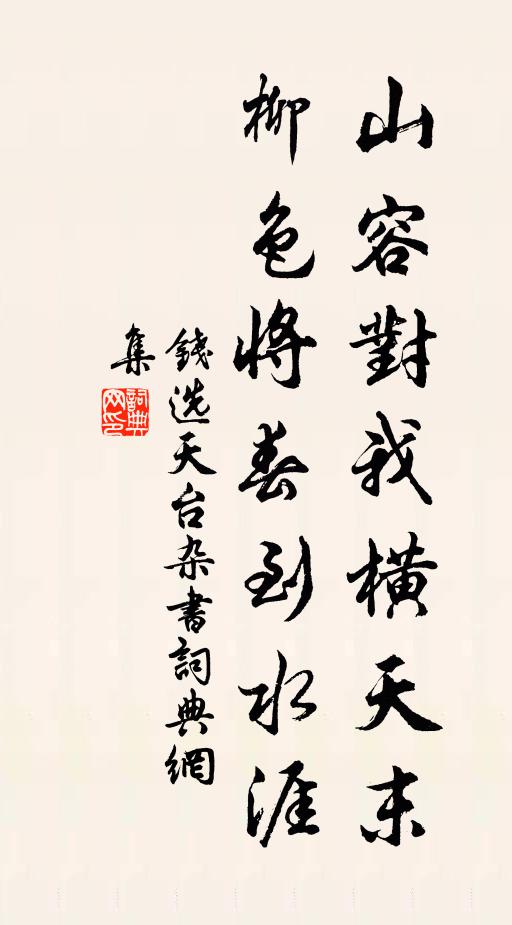 山容對我橫天末
柳色將春到水涯
錢选天台杂書詞典網
集
詞典
网印